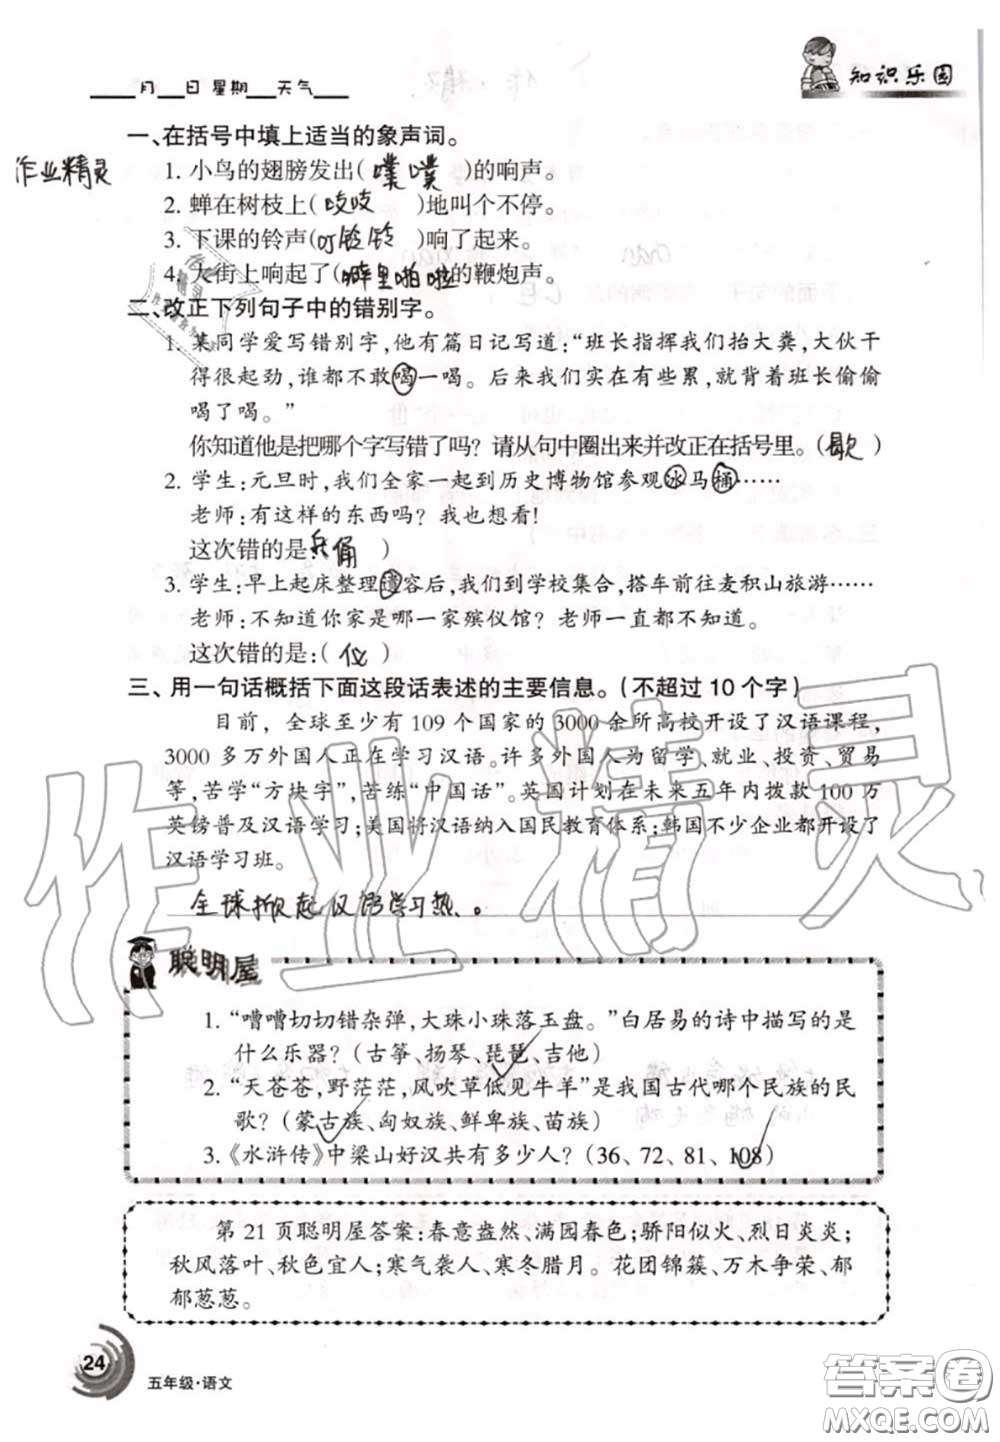 知识乐园
____月__日 星期__天气___
一、在括号中填上适当的象声词。
作业精灵
1. 小鸟的翅膀发出( 噗噗 )的响声。
2. 蝉在树枝上( 吱吱 )地叫个不停。
3. 下课的铃声(叮铃铃)响了起来。
4. 大街上响起了(噼里啪啦)的鞭炮声。
二、改正下列句子中的错别字。
1. 某同学爱写错别字,他有篇日记写道:“班长指挥我们抬大粪,大伙干
得很起劲,谁都不敢喝一喝。后来我们实在有些累,就背着班长偷偷
喝了喝。”
你知道他是把哪个字写错了吗？请从句中圈出来并改正在括号里。( 歇 )
2. 学生:元旦时,我们全家一起到历史博物馆参观冰马桶……
老师:有这样的东西吗？我也想看!
这次错的是:兵俑 )
3. 学生:早上起床整理遗容后,我们到学校集合,搭车前往麦积山旅游……
老师:不知道你家是哪一家殡仪馆？老师一直都不知道。
这次错的是:( 仪 )
三、用一句话概括下面这段话表述的主要信息。(不超过10个字)
目前，全球至少有109个国家的3000余所高校开设了汉语课程,
3000多万外国人正在学习汉语。许多外国人为留学、就业、投资、贸易
等,苦学“方块字”,苦练“中国话”。英国计划在未来五年内拨款100万
英镑普及汉语学习;美国将汉语纳入国民教育体系;韩国不少企业都开设了
汉语学习班。
全球掀起汉语学习热。
作业精灵
聪明屋
1. “嘈嘈切切错杂弹,大珠小珠落玉盘。”白居易的诗中描写的是
什么乐器？(古筝、扬琴、琵琶、吉他)
2. “天苍苍,野茫茫,风吹草低见牛羊”是我国古代哪个民族的民
歌？(蒙古族、匈奴族、鲜卑族、苗族)
3.《水浒传》中梁山好汉共有多少人？(36、72、81、108)
第21页聪明屋答案:春意盎然、满园春色;骄阳似火、烈日炎炎;
秋风落叶、秋色宜人;寒气袭人、寒冬腊月。花团锦簇、万木争荣、郁
郁葱葱。
24
五年级·语文
答案圈
MXQE.COM